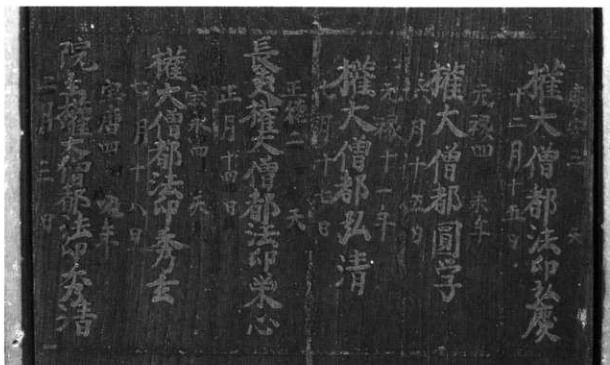 慶安二 天
權大僧都法印弘慶
十二月十五日
元禄四 未年
權大僧都圓学
六月十五日
元禄十一年
權大僧都弘清
七月十七日
正徳二 天
權大僧都法印栄心
正月十四日
宝永四 天
權大僧都法印秀玄
七月十八日
宝暦四 年
院主權大僧都法印秀浩
二月三日